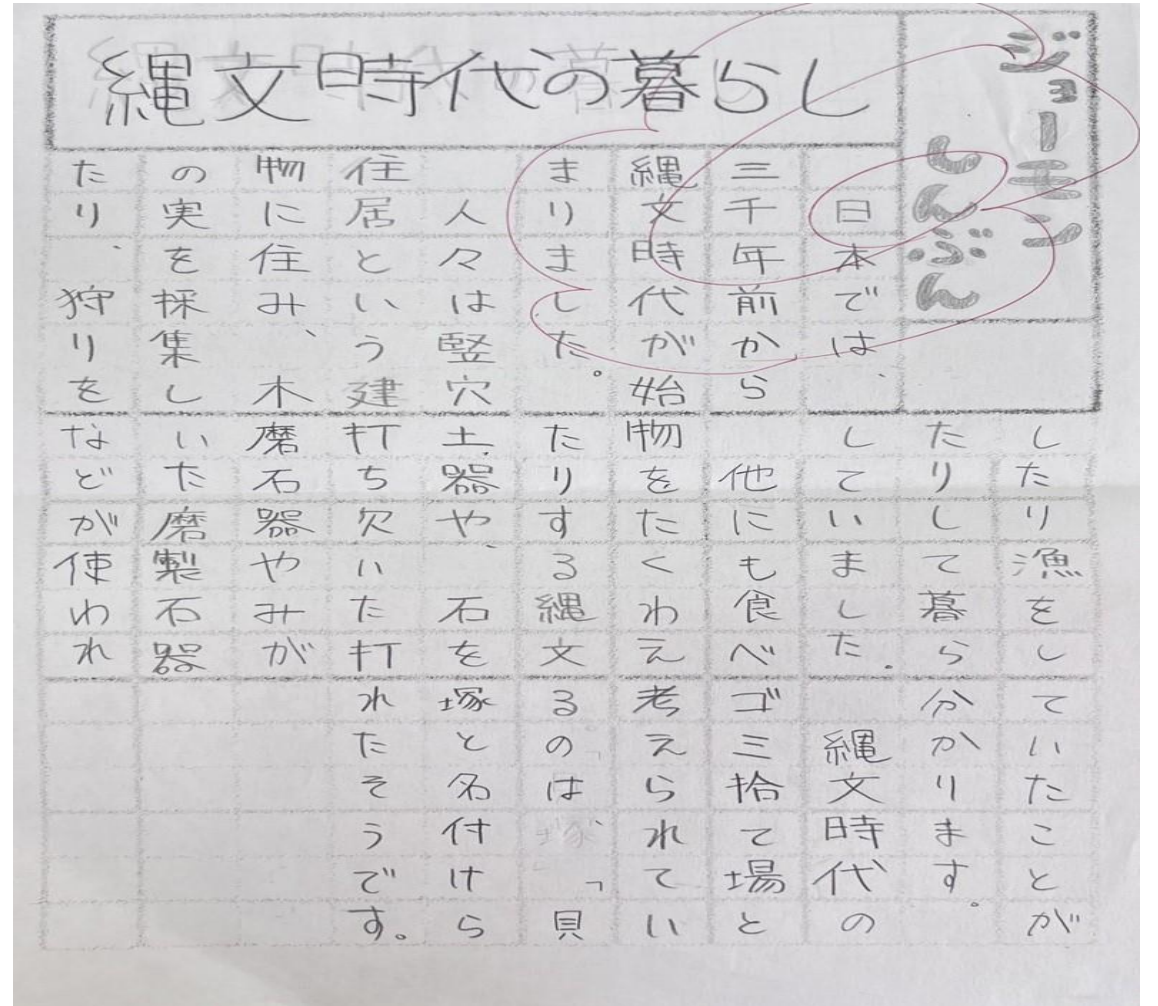 ジョーモン
しんぶん
縄文時代の暮らし
日本では、
三千年前から
縄文時代が始
まりました。
人々は竪穴
住居という建
物に住み、木
の実を採集し
たり、狩りを
したり漁をし
たりして暮ら
していました。
他にも食べ
物をたくわえ
たりする縄文
土器や、石を
打ち欠いた打
磨石器やみが
いた磨製石器
などが使われ
ていたことが
分かります。
縄文時代の
ゴミ拾て場と
考えられてい
るのは「貝
塚と名付けら
れたそうです。